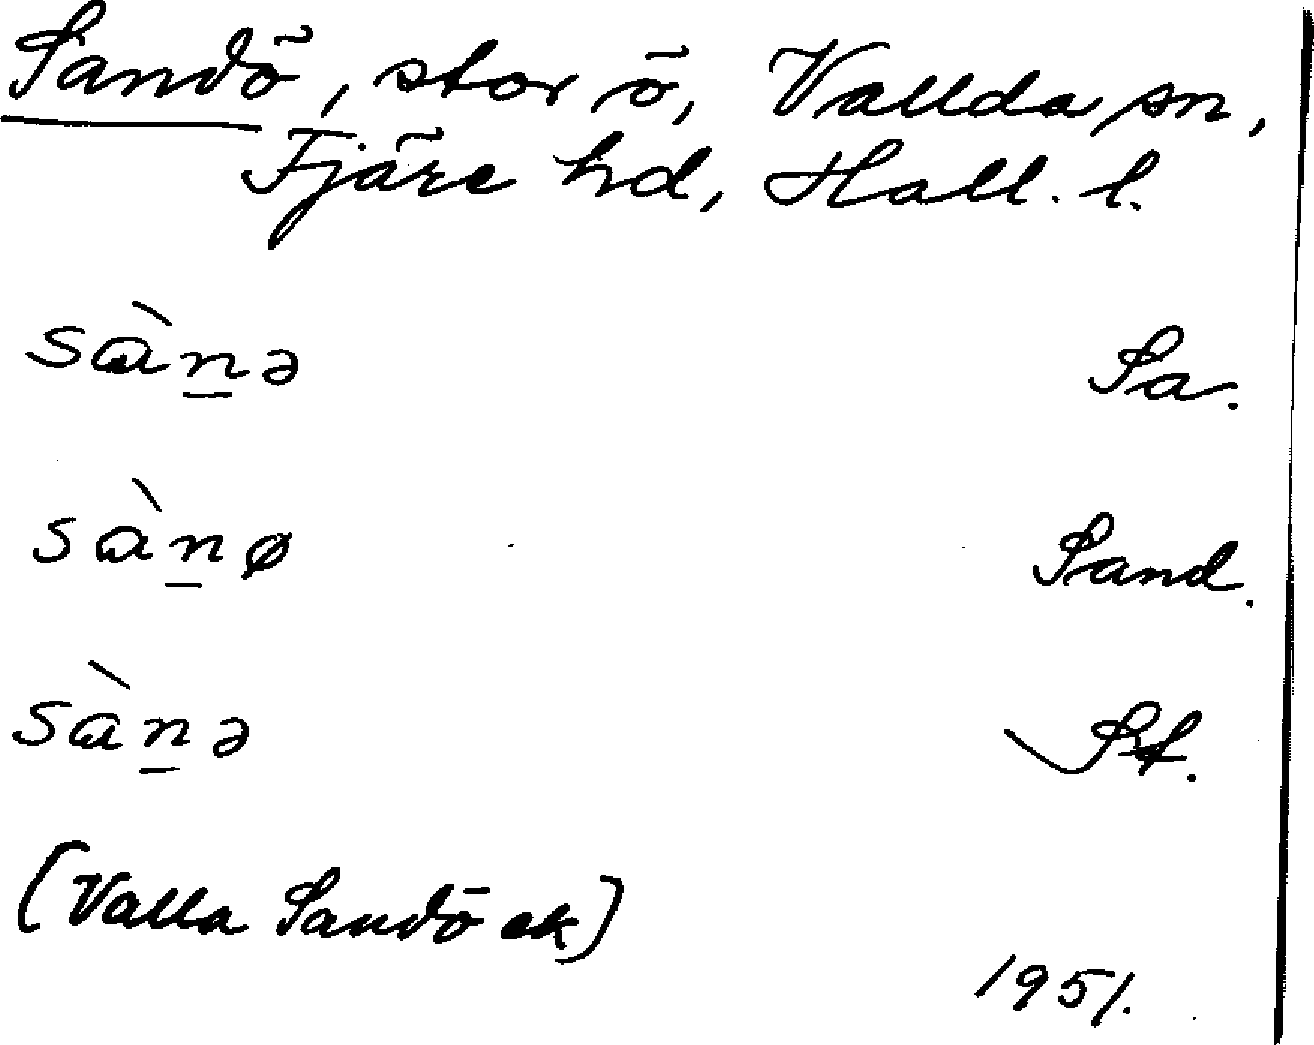 Sandö, stor ö, Vallda sn,
Fjäre hd, Hall. l.
sɑ̀n̲ə Sa.
sɑ̀n̲ø Sand.
sɑ̀n̲ə St.
(Valla Sandö ek)
1951.